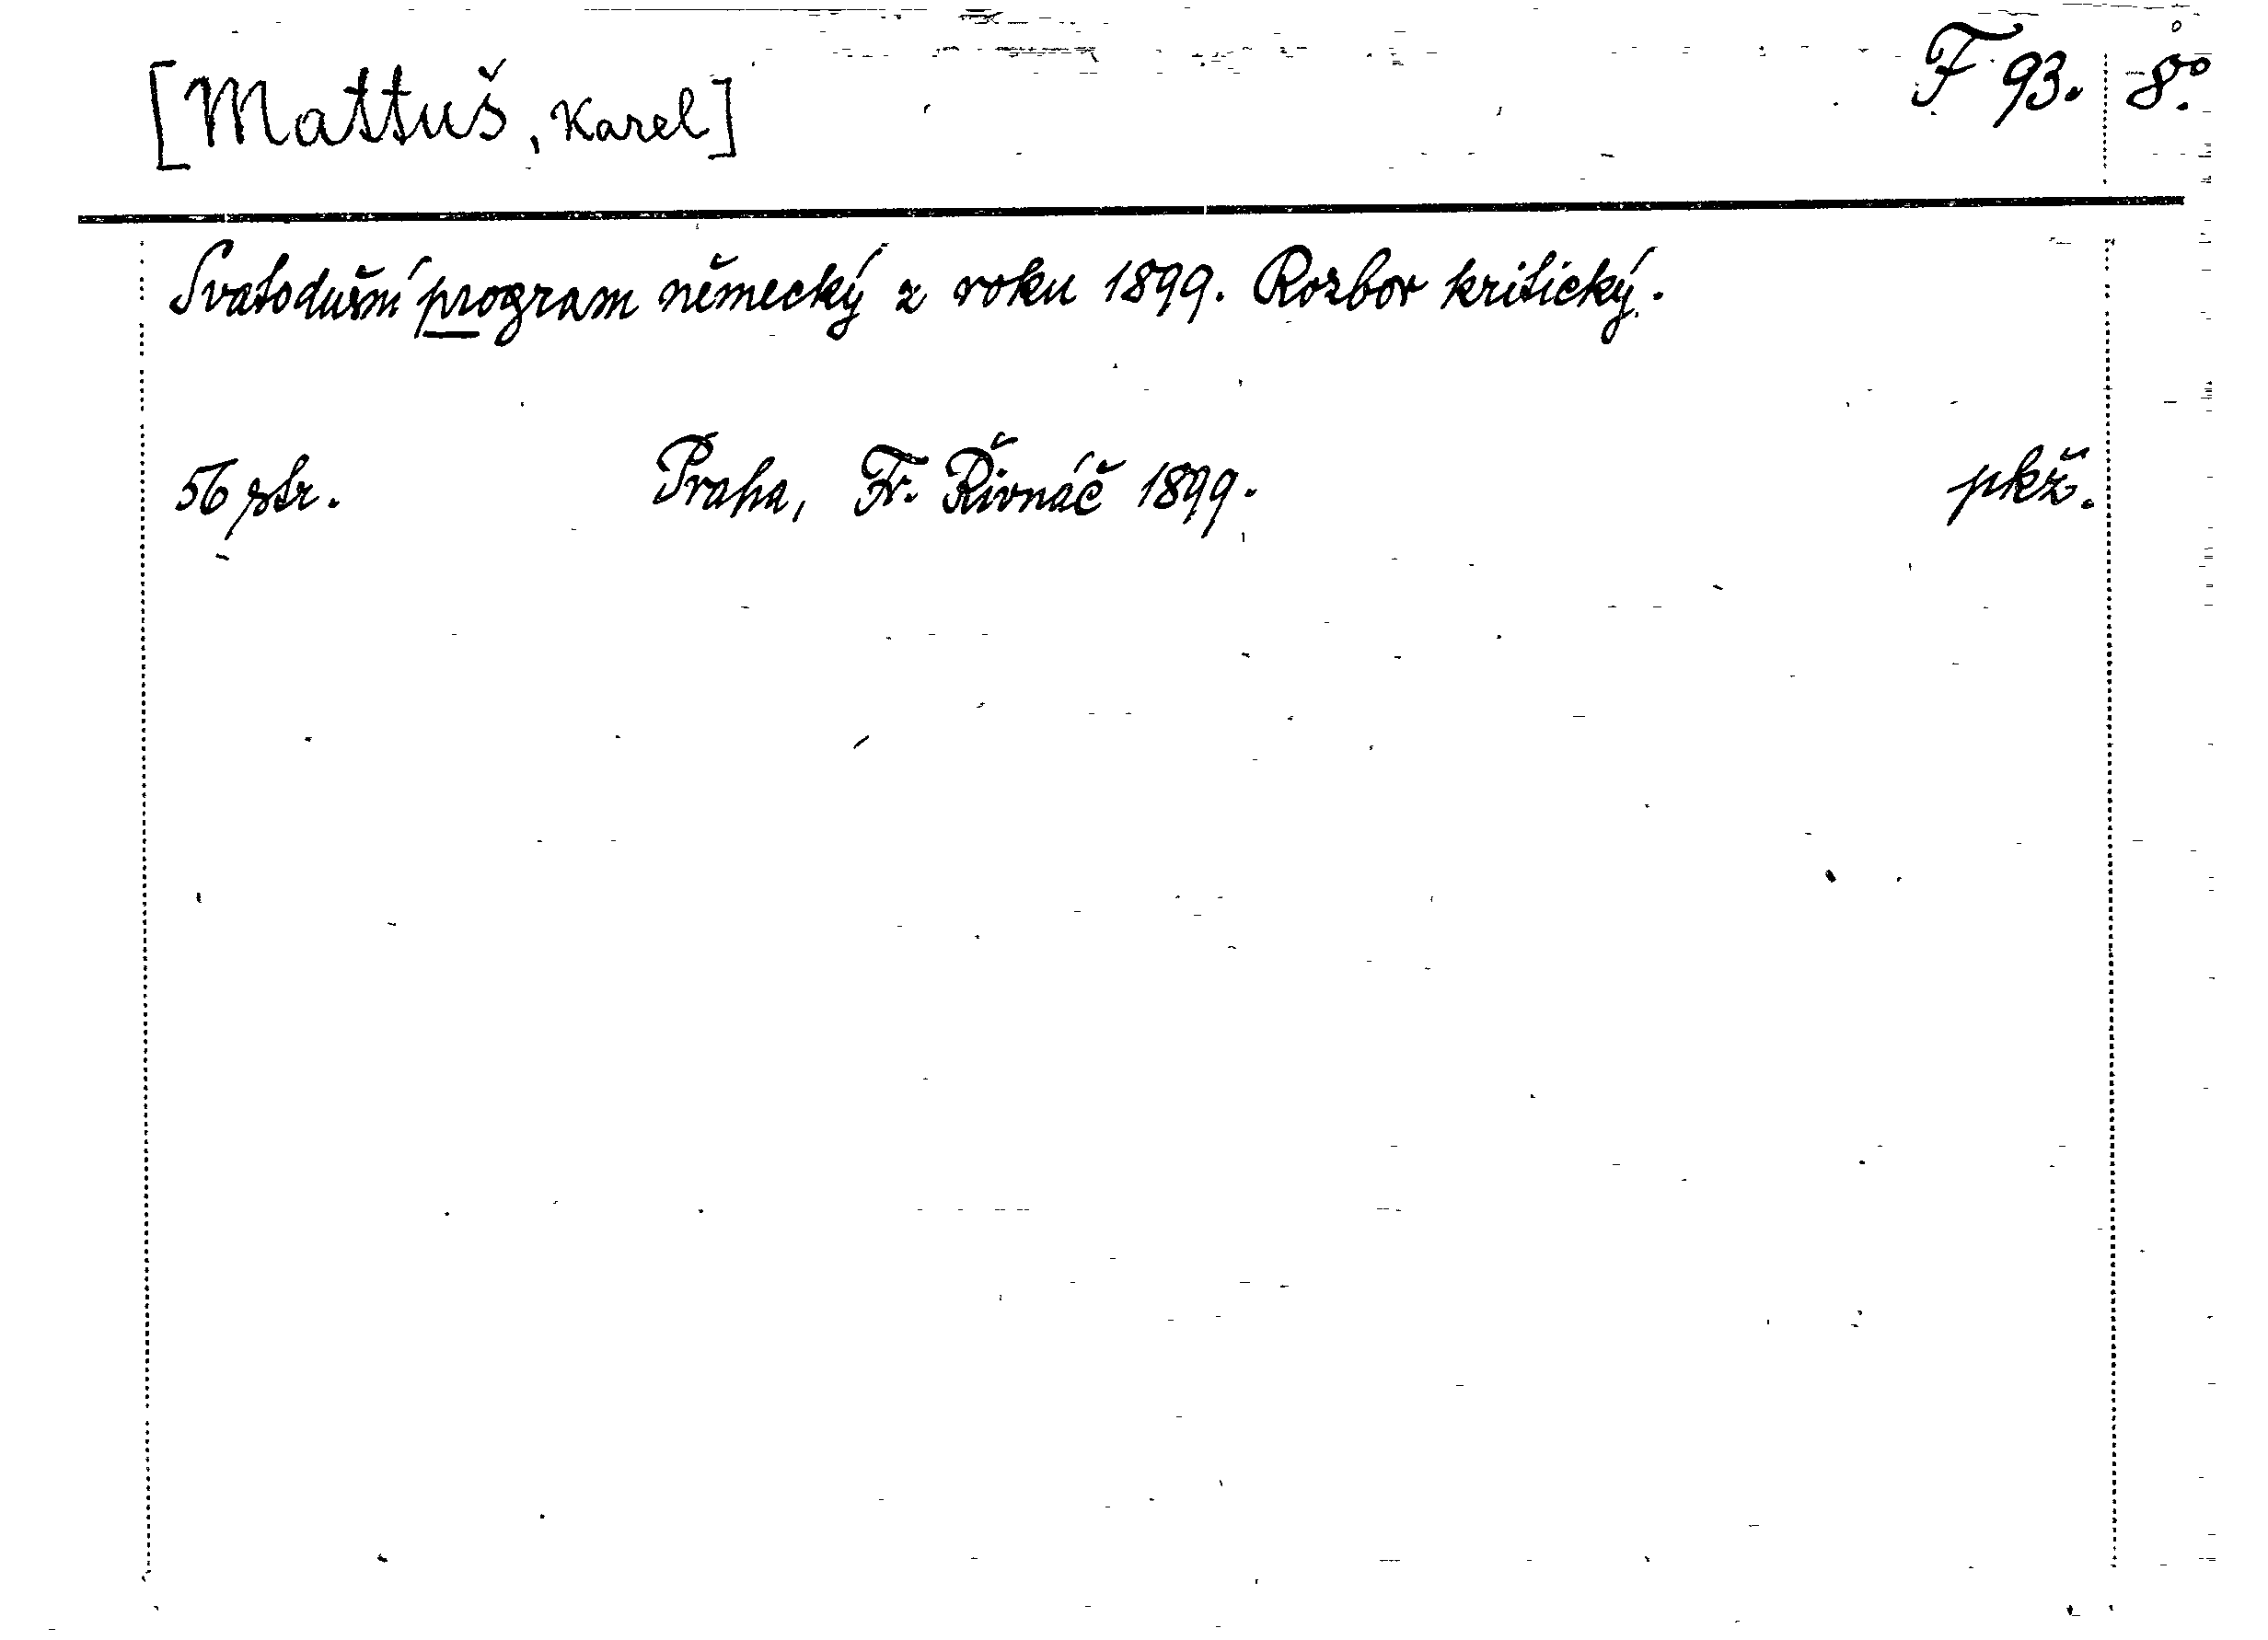 [Mattuš, Karel] F 93. 8°.
Svatodušní program německý z roku 1899. Rozbor kritický.
56 str. Praha, Fr. Řivnáč 1899. pkž.